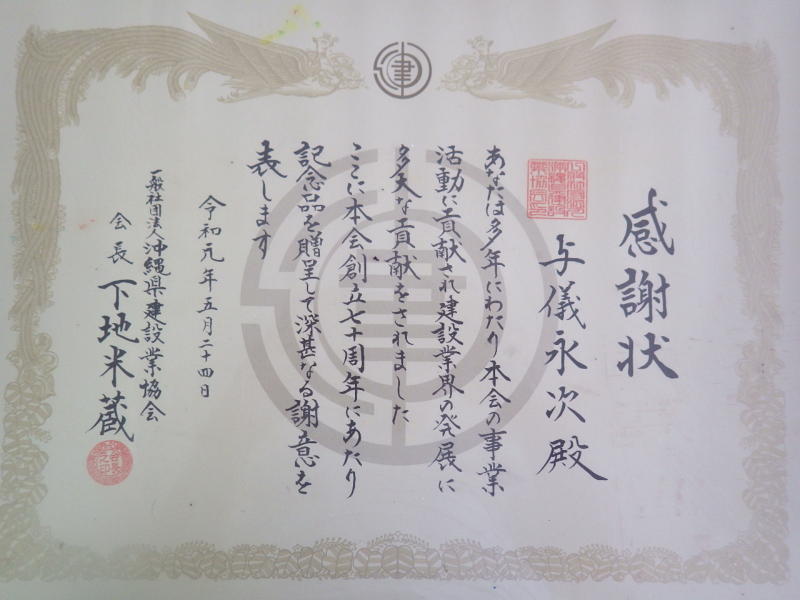 感謝状
与儀永次殿
あなたは多年にわたり本会の事業
活動に貢献され建設業界の発展に
多大な貢献をされました
ここに本会創立七十周年にあたり
記念品を贈呈して深甚なる謝意を
表します
令和元年五月二十四日
一般社団法人沖縄県建設業協会
会長下地米蔵